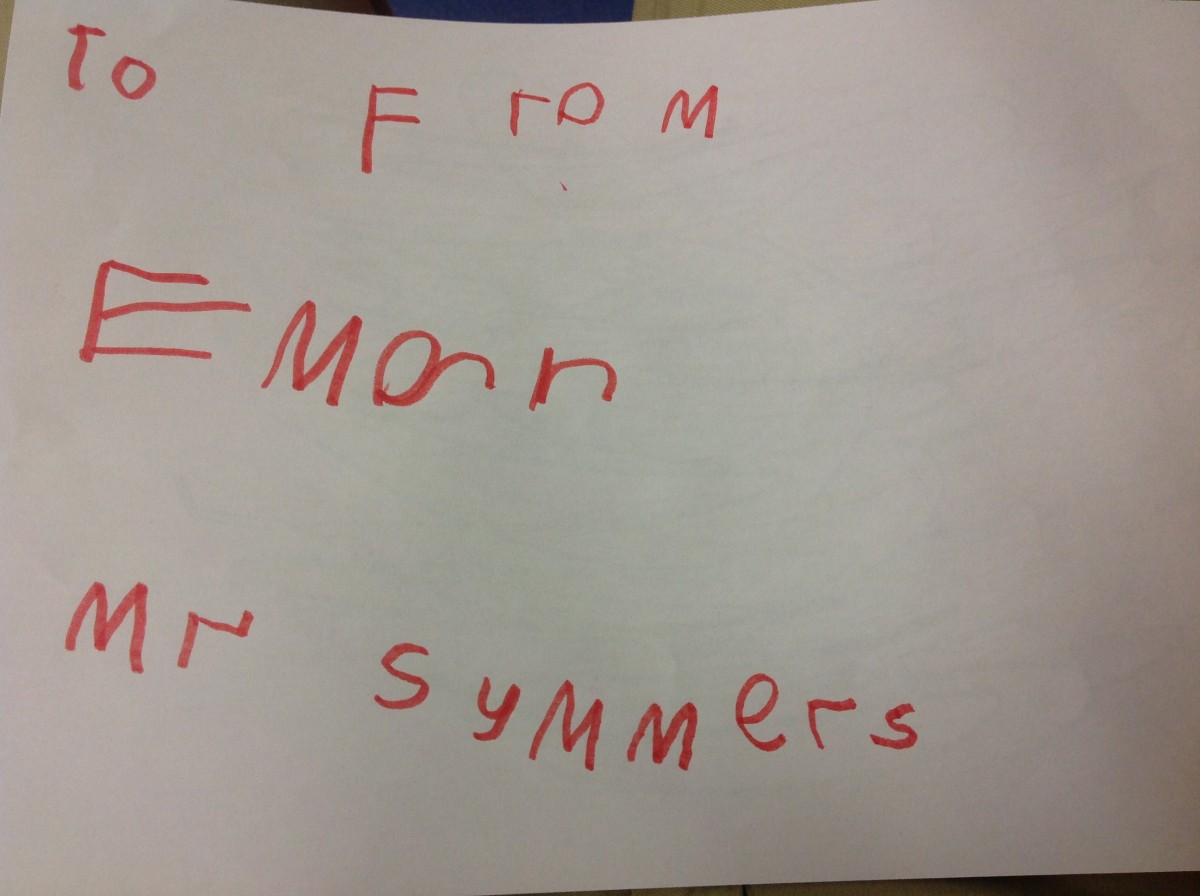 To From
Eman
Mr symmers